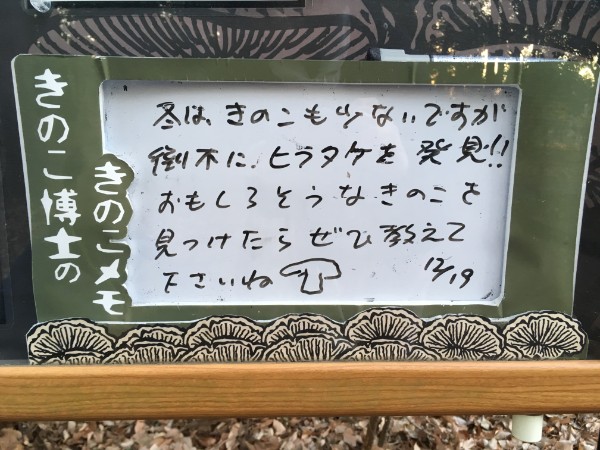 きのこ博士の
きのこメモ
冬は、きのこも少ないですが
倒木に、ヒラタケを発見!!
おもしろそうなきのこを
見つけたらぜひ教えて
下さいね
12/19